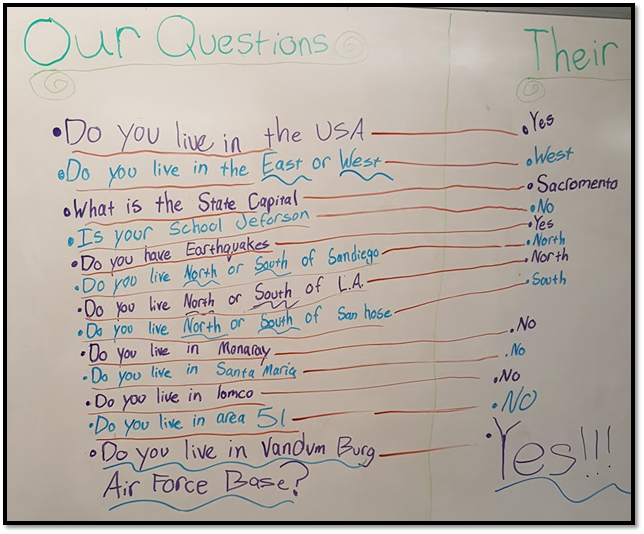 Our Questions Their
•Do you live in the USA •Yes
•Do you live in the East or West •West
•What is the State Capital •Sacromento
•Is your School Jeforson •No
•Do you have Earthquakes •Yes
•Do you live North or South of Sandiego •North
•Do you live North or South of L.A. •North
•Do you live North or South of San hose •South
•Do you live in Monaray •No
•Do you live in Santa Maria •No
•Do you live in lomco •No
•Do you live in area 51 •NO
•Do you live in Vandum Burg •Yes!!!
Air Force Base?